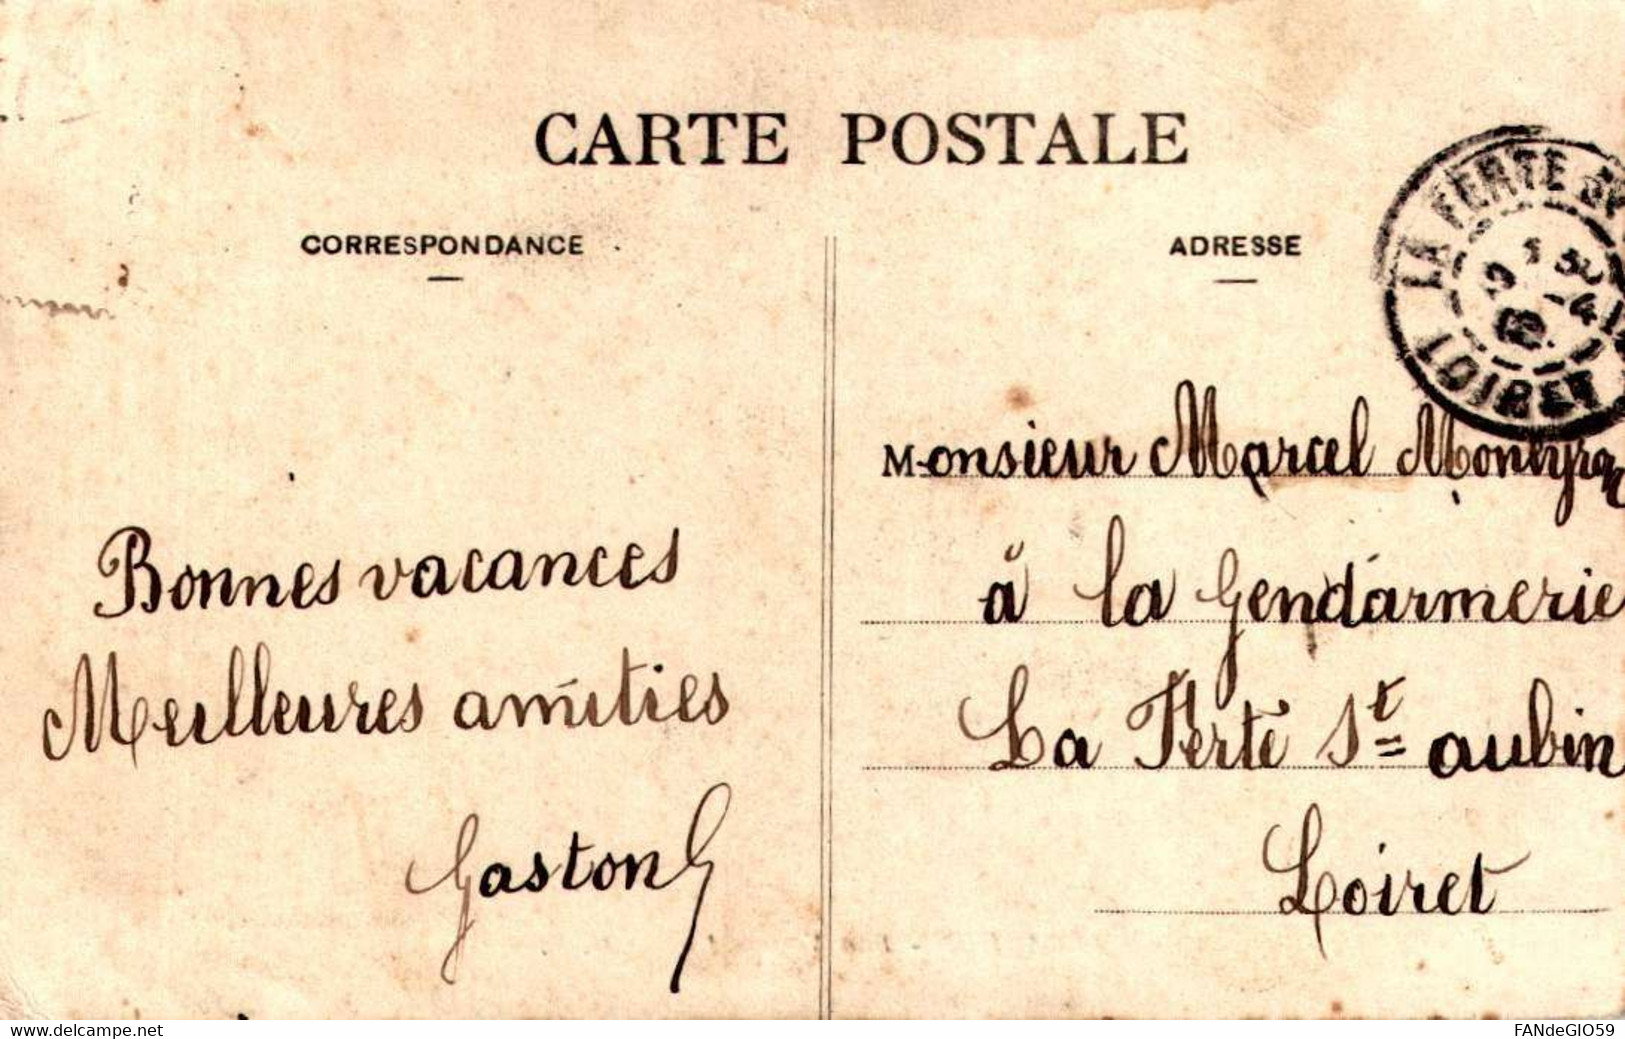 CARTE POSTALE
CORRESPONDANCE
ADRESSE
LA FERTE ST
LOIRET
Bonnes vacances
Meilleures amitiés
Gaston G
Monsieur Marcel
à la Gendarmerie
La Ferté St aubin
Loiret
www.delcampe.net
FANdeGIO59